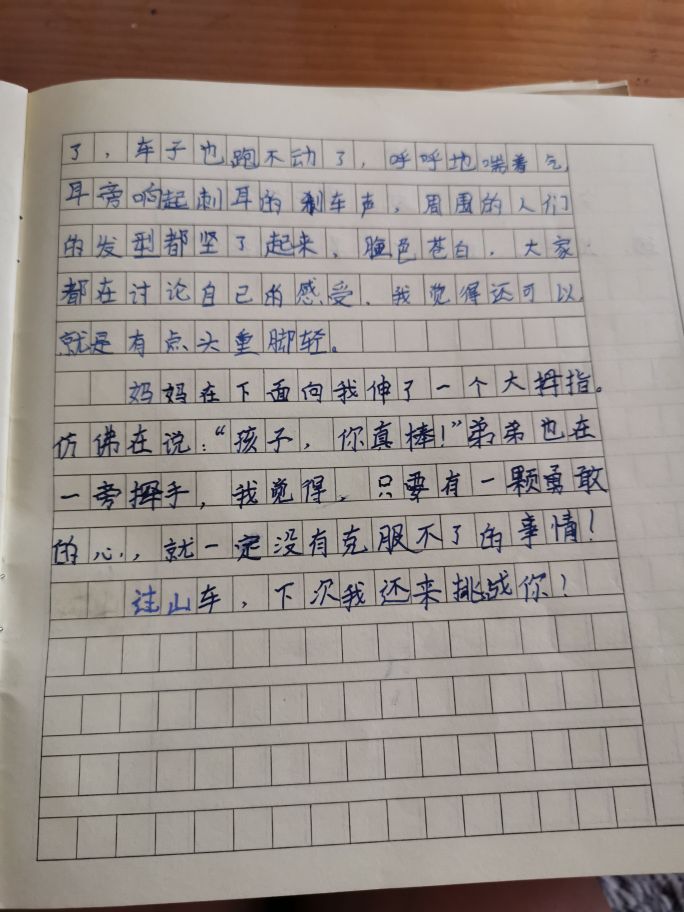 了，车子也跑不动了，呼呼地喘着气，
耳旁响起刺耳的刹车声，周围的人们
的发型都坚了起来，脸色苍白，大家
都在讨论自己的感受，我觉得还可以，
就是有点头重脚轻。
妈妈在下面向我伸了一个大拇指。
仿佛在说：“孩子，你真棒！”弟弟也在
一旁挥手，我觉得，只要有一颗勇敢
的心，就一定没有克服不了的事情！
过山车，下次我还来挑战你！